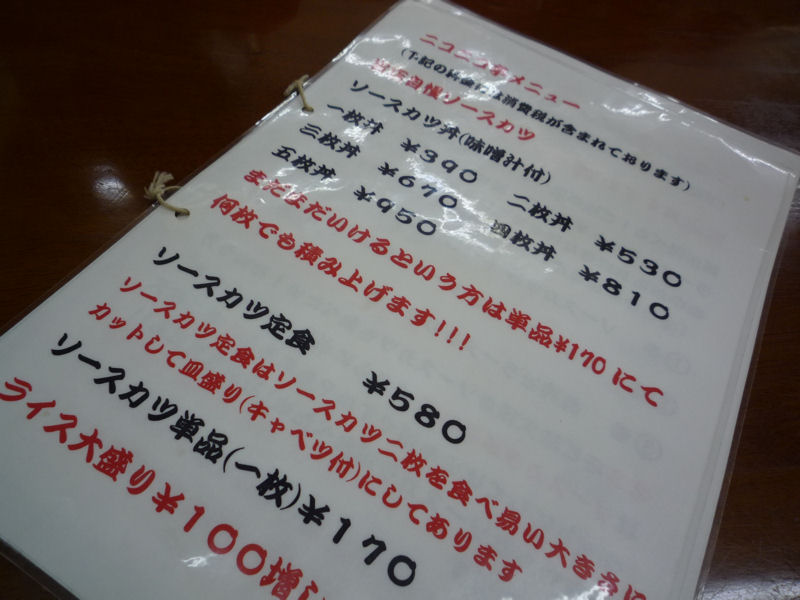 ニコニコ亭メニュー
(下記の料金には消費税が含まれております)
当店自慢ソースカツ
ソースカツ丼(味噌汁付)
一枚丼 ¥390 二枚丼 ¥530
三枚丼 ¥670 四枚丼 ¥810
五枚丼 ¥950
まだまだいけるという方は単品¥170にて
何枚でも積み上げます!!!
ソースカツ定食 ¥580
ソースカツ定食はソースカツ二枚を食べ易い大きさに
カットして皿盛り(キャベツ付)にしてあります
ソースカツ単品(一枚)¥170
ライス大盛り¥100増し